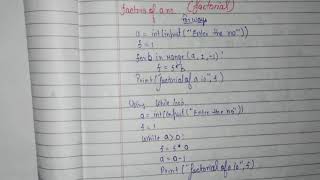 factors of a no. (factorial)
For ways
a = int(input("Enter the no"))
f = 1
for b in range (a, 1, -1)
f = f*b
Print("factorial of a is", f)
Using While loop
a = int(input("Enter the no"))
f = 1
While a>0:
f = f * a
a = a-1
Print("factorial of a is", f)